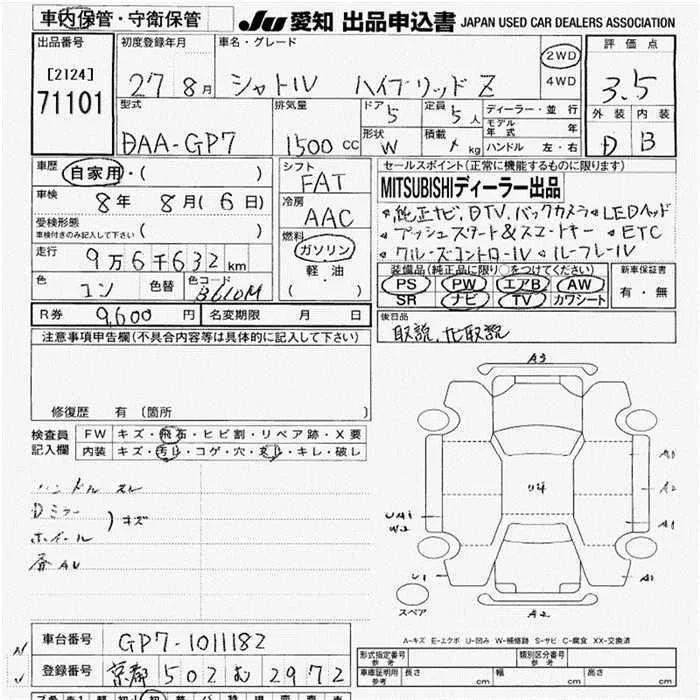 車内保管・守衛保管 JU 愛知 出品申込書 JAPAN USED CAR DEALERS ASSOCIATION
出品番号 初度登録年月 車名・グレード 2WD 評価点
[2124] 27 8月 シャトル ハイブリッド Z 4WD 3.5
71101 型式 排気量 ドア 5 定員 5人 ディーラー・並行 外装 内装
DAA-GP7 1500 CC 形状 W 積載 kg モデル年式 年 D B
ハンドル 左・右
車歴 自家用・( ) シフト FAT セールスポイント(正常に機能するものに限ります)
車検 8年 8月(6日) 冷房 AAC MITSUBISHIディーラー出品
受検形態 ( ) 純正ナビ、DTV、バックカメラ LEDヘッド
車検付きのみ記入して下さい 燃料 プッシュスタート&スマートキー ETC
走行 9万6千632km ガソリン クルーズコントロール ルーフレール
色 コン 色替 色コード B610M 軽油 装備品(純正品に限り○をつけてください) 新車保証書
( ) PS PW エアB AW 有・無
SR ナビ TV カワシート
R券 9,600円 名変期限 月 日 後日品
注意事項申告欄(不具合内容等は具体的に記入して下さい) 取説、ナビ取説
修復歴 有 (箇所 )
検査員記入欄 FW キズ・飛石・ヒビ割・リペア跡・X要
内装 キズ・汚れ・コゲ・穴・ヌレ・キレ・破レ
ハンドル スレ
Dミラー
ホイール
キズ
A3
リ4
A2
A1
UA1
W2
U1
A1
A2
スペア
A-キズ E-エクボ U-凹み W-補修跡 S-サビ C-腐食 XX-交換済
車台番号 GP7-1011182
登録番号 京都 502 む 2972
形式指定番号 参考 類別区分番号 参考
車庫証明用 参考 長さ cm 幅 cm 高さ cm